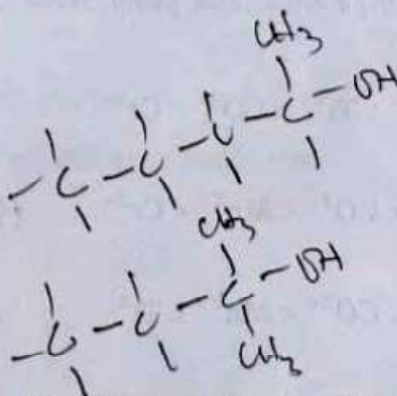 CH3
C - C - C - C - OH
CH3
C - C - C - OH
CH3